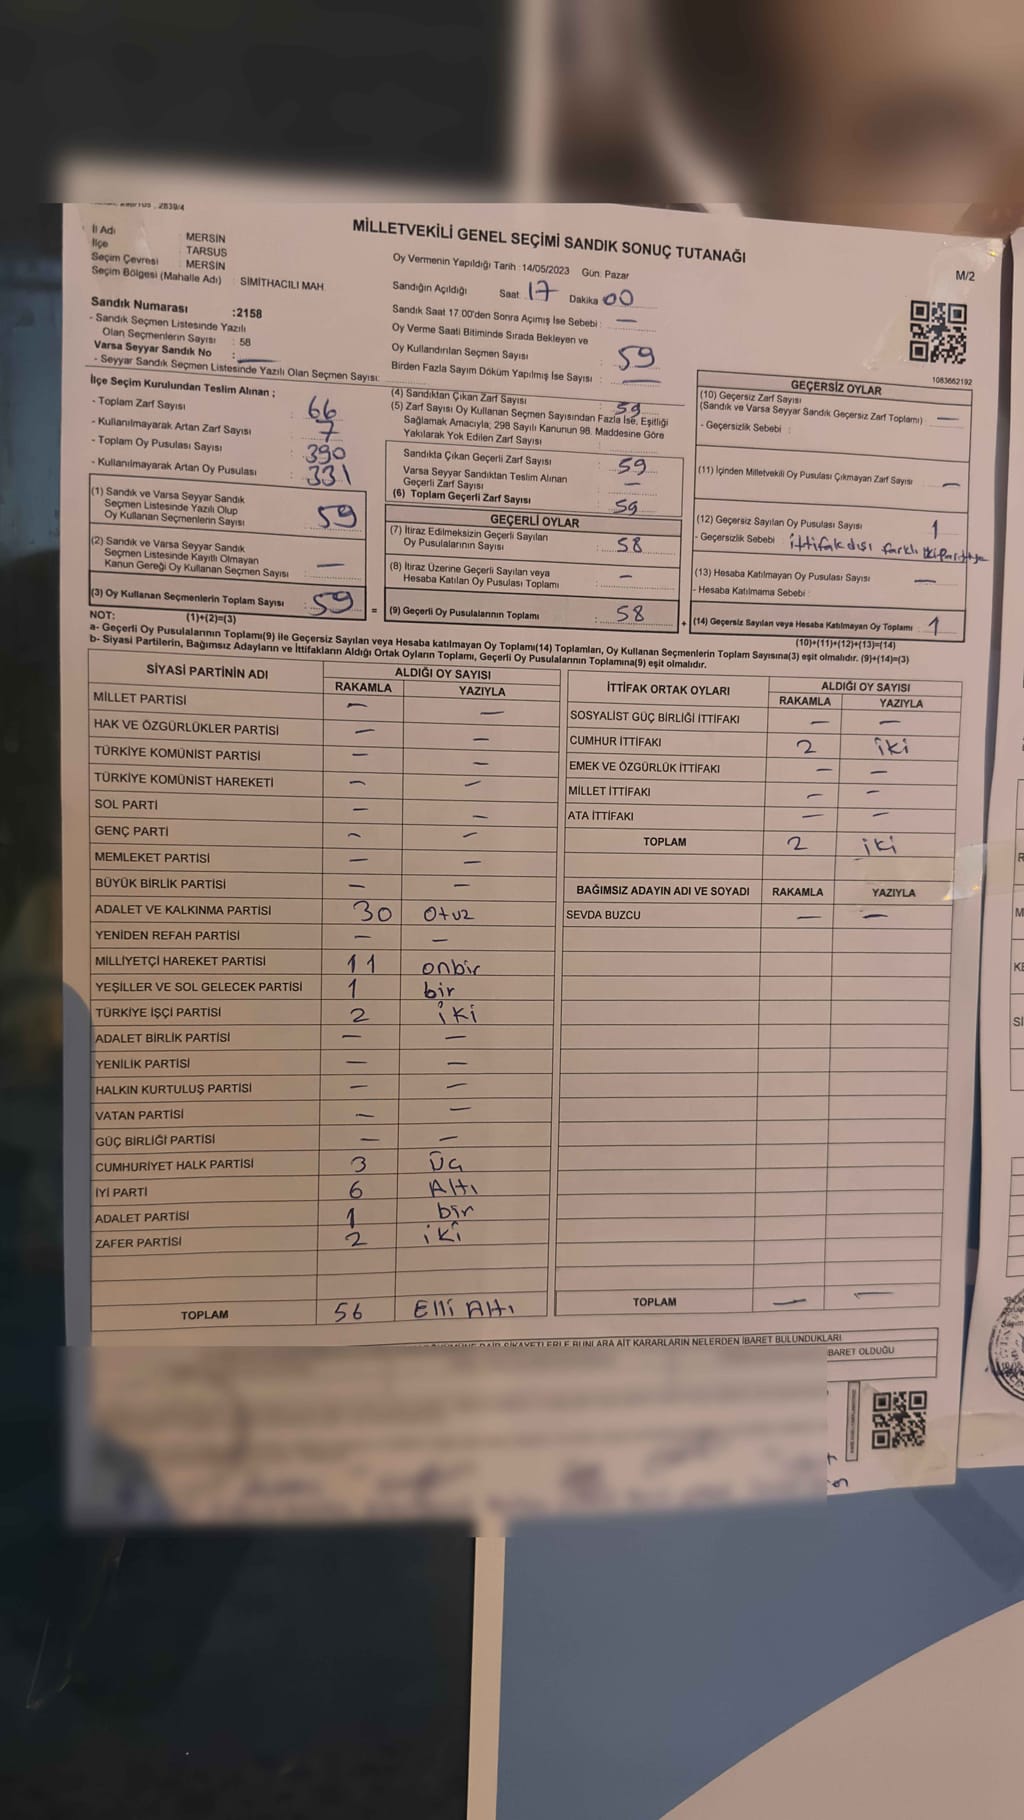 MİLLETVEKİLİ GENEL SEÇİMİ SANDIK SONUÇ TUTANAĞI
M/2
İl Adı : MERSİN
İlçe TARSUS
Seçim Çevresi : MERSİN
Seçim Bölgesi (Mahalle Adı) : SİMİTHACILI MAH.
Sandık Numarası :2158
- Sandık Seçmen Listesinde Yazılı
Olan Seçmenlerin Sayısı : 58
Varsa Seyyar Sandık No : —
- Seyyar Sandık Seçmen Listesinde Yazılı Olan Seçmen Sayısı:
Oy Vermenin Yapıldığı Tarih :14/05/2023 Gün: Pazar
Sandığın Açıldığı Saat 17 Dakika 00
Sandık Saat 17.00'den Sonra Açımış İse Sebebi : —
Oy Verme Saati Bitiminde Sırada Bekleyen ve
Oy Kullandırılan Seçmen Sayısı : 59
Birden Fazla Sayım Döküm Yapılmış İse Sayısı : —
İlçe Seçim Kurulundan Teslim Alınan ;
- Toplam Zarf Sayısı : 66
- Kullanılmayarak Artan Zarf Sayısı : 7
- Toplam Oy Pusulası Sayısı : 390
- Kullanılmayarak Artan Oy Pusulası : 331
(1) Sandık ve Varsa Seyyar Sandık
Seçmen Listesinde Yazılı Olup
Oy Kullanan Seçmenlerin Sayısı : 59
(2) Sandık ve Varsa Seyyar Sandık
Seçmen Listesinde Kayıtlı Olmayan
Kanun Gereği Oy Kullanan Seçmen Sayısı : —
(3) Oy Kullanan Seçmenlerin Toplam Sayısı : 59
(1)+(2)=(3)
(4) Sandıktan Çıkan Zarf Sayısı : 59
(5) Zarf Sayısı Oy Kullanan Seçmen Sayısından Fazla İse, Eşitliği
Sağlamak Amacıyla; 298 Sayılı Kanunun 98. Maddesine Göre
Yakılarak Yok Edilen Zarf Sayısı :
Sandıkta Çıkan Geçerli Zarf Sayısı : 59
Varsa Seyyar Sandıktan Teslim Alınan
Geçerli Zarf Sayısı : —
(6) Toplam Geçerli Zarf Sayısı : 59
GEÇERLİ OYLAR
(7) İtiraz Edilmeksizin Geçerli Sayılan
Oy Pusulalarının Sayısı : 58
(8) İtiraz Üzerine Geçerli Sayılan veya
Hesaba Katılan Oy Pusulası Toplamı : —
= (9) Geçerli Oy Pusulalarının Toplamı : 58
1083662192
GEÇERSİZ OYLAR
(10) Geçersiz Zarf Sayısı
(Sandık ve Varsa Seyyar Sandık Geçersiz Zarf Toplamı) : —
- Geçersizlik Sebebi :
(11) İçinden Milletvekili Oy Pusulası Çıkmayan Zarf Sayısı : —
(12) Geçersiz Sayılan Oy Pusulası Sayısı : 1
- Geçersizlik Sebebi : ittifak dışı farklı iki partiye
(13) Hesaba Katılmayan Oy Pusulası Sayısı : —
- Hesaba Katılmama Sebebi :
+ (14) Geçersiz Sayılan veya Hesaba Katılmayan Oy Toplamı : 1
(10)+(11)+(12)+(13)=(14)
NOT:
a- Geçerli Oy Pusulalarının Toplamı(9) ile Geçersiz Sayılan veya Hesaba katılmayan Oy Toplamı(14) Toplamları, Oy Kullanan Seçmenlerin Toplam Sayısına(3) eşit olmalıdır. (9)+(14)=(3)
b- Siyasi Partilerin, Bağımsız Adayların ve İttifakların Aldığı Ortak Oyların Toplamı, Geçerli Oy Pusulalarının Toplamına(9) eşit olmalıdır.
SİYASİ PARTİNİN ADI ALDIĞI OY SAYISI
RAKAMLA YAZIYLA
MİLLET PARTİSİ — —
HAK VE ÖZGÜRLÜKLER PARTİSİ — —
TÜRKİYE KOMÜNİST PARTİSİ — —
TÜRKİYE KOMÜNİST HAREKETİ — —
SOL PARTİ — —
GENÇ PARTİ — —
MEMLEKET PARTİSİ — —
BÜYÜK BİRLİK PARTİSİ — —
ADALET VE KALKINMA PARTİSİ 30 Otuz
YENİDEN REFAH PARTİSİ — —
MİLLİYETÇİ HAREKET PARTİSİ 11 onbir
YEŞİLLER VE SOL GELECEK PARTİSİ 1 bir
TÜRKİYE İŞÇİ PARTİSİ 2 iki
ADALET BİRLİK PARTİSİ — —
YENİLİK PARTİSİ — —
HALKIN KURTULUŞ PARTİSİ — —
VATAN PARTİSİ — —
GÜÇ BİRLİĞİ PARTİSİ — —
CUMHURİYET HALK PARTİSİ 3 Üç
İYİ PARTİ 6 Altı
ADALET PARTİSİ 1 bir
ZAFER PARTİSİ 2 iki
TOPLAM 56 Elli Altı
İTTİFAK ORTAK OYLARI ALDIĞI OY SAYISI
RAKAMLA YAZIYLA
SOSYALİST GÜÇ BİRLİĞİ İTTİFAKI — —
CUMHUR İTTİFAKI 2 iki
EMEK VE ÖZGÜRLÜK İTTİFAKI — —
MİLLET İTTİFAKI — —
ATA İTTİFAKI — —
TOPLAM 2 iki
BAĞIMSIZ ADAYIN ADI VE SOYADI RAKAMLA YAZIYLA
SEVDA BUZCU — —
TOPLAM — —
ŞİKAYETLERLE BUNLARA AİT KARARLARIN NELERDEN İBARET BULUNDUKLARI
BARET OLDUĞU